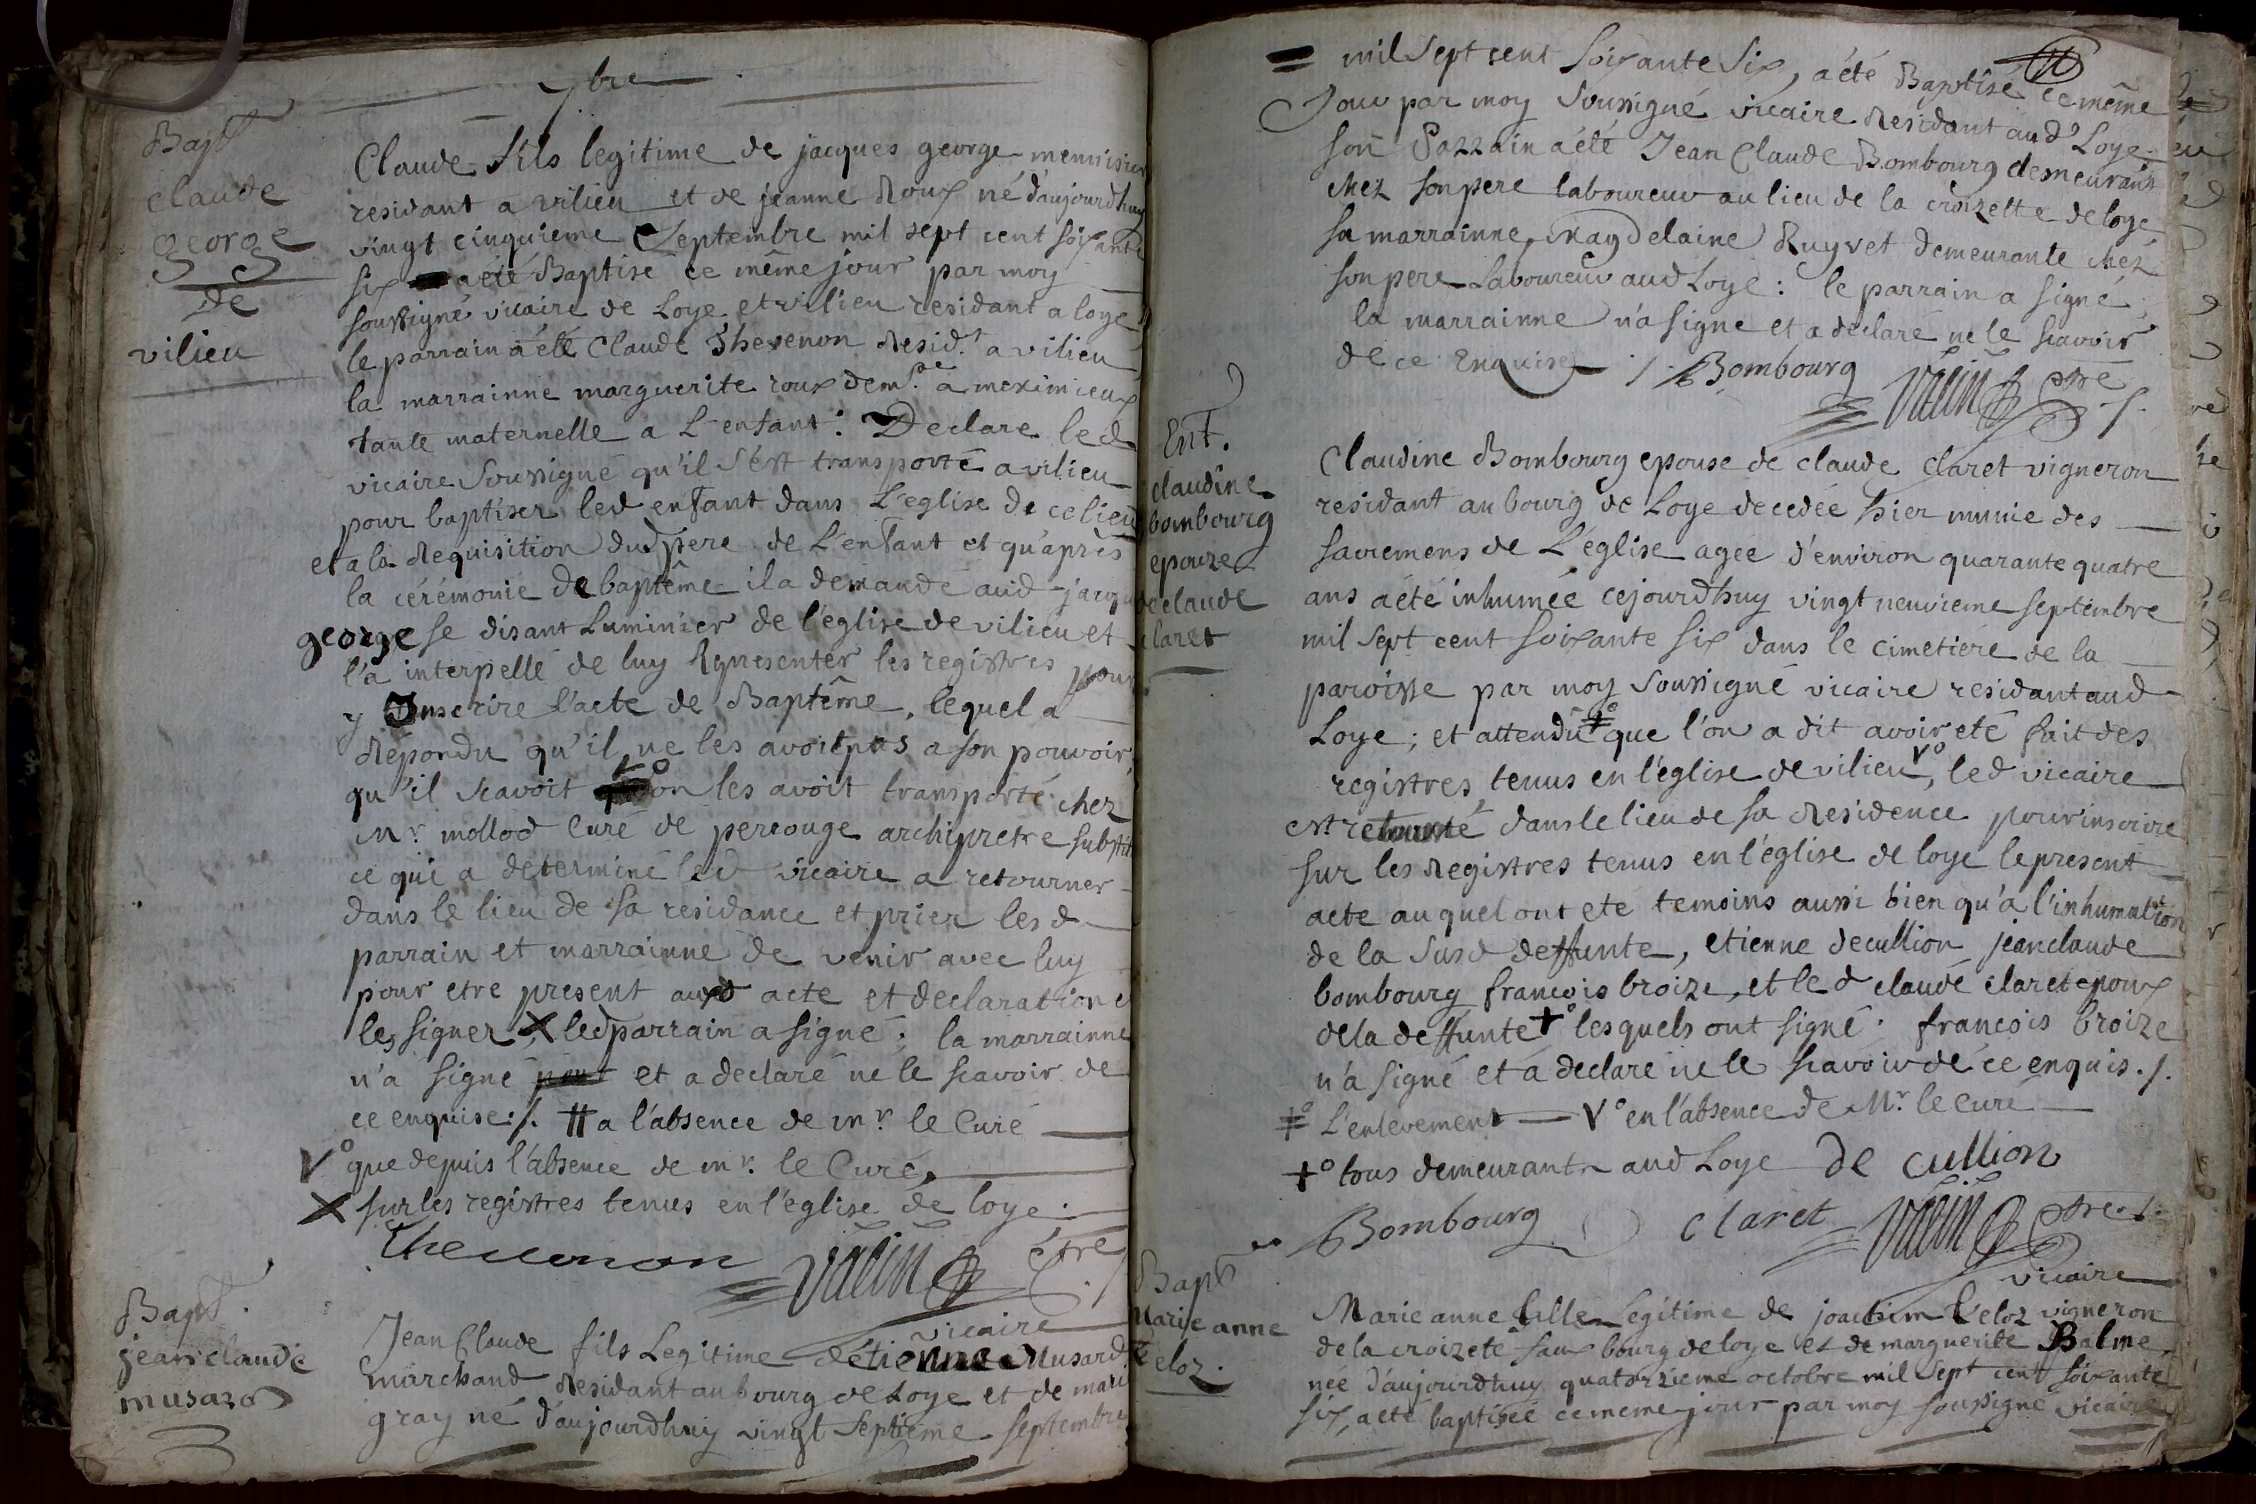 7bre
Bapt
claude
george
de
vilieu
Claude fils legitime de jacques george menuisier
residant a vilieu et de jeanne Roux né d'aujourdhuy
vingt cinquieme Septembre mil sept cent soixante
six a été Baptisé ce même jour par moy
soussigné vicaire de Loye et vilieu residant a loye
le parrain a été Claude Thevenon Resid.t a vilieu
la marrainne marguerite roux dem.te a meximieux
tante maternelle a L'enfant : Declare led
vicaire soussigné qu'il s'est transporté a vilieu
pour baptiser led enfant dans L'eglise de ce lieu
et a la Requisition dud pere de L'enfant et qu'après
la cérémonie de baptême il a demandé aud jacques
george se disant Luminier de l'église de vilieu et
l'a interpellé de luy Representer les registres pour
y Inscrire l'acte de Baptême, lequel a
Répondu qu'il ne les avoit pas a son pouvoir,
qu'il scavoit V° on les avoit transporté chez
Mr. mollod Curé de perouge archipretre substit
ce qui a determiné led vicaire a retourner
dans le lieu de sa residance et prier lesd
parrain et marrainne de venir avec luy
pour etre present auxd acte et declaration et
les signer X led parrain a signé ; la marrainne
n'a signé et a declaré ne le scavoir de
ce enquise ./. # a l'absence de mr. le Curé
V° que depuis l'absence de mr. le Curé,
X sur les registres tenus en l'église de loye.
Thevenon Valin ptre
vicaire
Bapt.
jean claude
musard
Jean Claude fils Legitime d'étienne Musard
marchand Residant au bourg de Loye et de marie
gray né d'aujourdhuy vingt septieme septembre
mil sept cent soixante six, a été Baptisé ce même
Jour par moy soussigné vicaire Residant aud Loye.
son Parrain a été Jean Claude Bombourg demeurant
chez son pere laboureur au lieu de la croizette de loye
sa marrainne Magdelaine Ruyvet demeurante chez
son pere Laboureur aud Loye : le parrain a signé
la marrainne n'a signe et a declaré ne le scavoir
de ce Enquise ./. Bombourg Valin ptre ./.
Ent.
claudine
bombourg
epouze
de claude
claret
Claudine Bombourg epouse de claude claret vigneron
residant au bourg de Loye decedée hier munie des
sacremens de L'église agée d'environ quarante quatre
ans a été inhumée cejourdhuy vingt neuvieme septembre
mil sept cent soixante six dans le cimetiere de la
paroisse par moy soussigné vicaire residant aud
Loye ; et attendu ‡° que l'on a dit avoir eté fait des
registres tenus en l'église de vilieu V°, led vicaire
est retourné dans le lieu de sa Residence pour inscrire
sur les Registres tenus en l'église de loye le present
acte auquel ont eté temoins aussi bien qu'à l'inhumation
de la susd deffunte, etienne decullion jean claude
bombourg françois broize, et led claude claret epoux
de la deffunte +° lesquels ont signé . françois broize
n'a signé et a declaré ne le scavoir de ce enquis ./.
‡° L'enlevement — V° en l'absence de Mr. le Curé
+° tous demeurants aud Loye De cullion
Bombourg claret Valin ptre ./.
vicaire
Bapt
Marie anne
Marie anne fille Legitime de joachim vigneron
de la croizete faux bourg de loye et de marguerite Balme
née d'aujourdhuy quatorzieme octobre mil sept cent soixante
six, a eté baptisée ce meme jour par moy soussigné vicaire